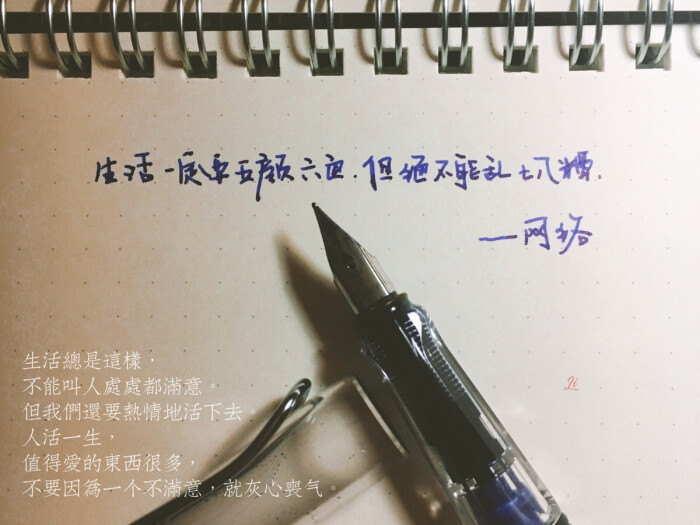 生活一定要五颜六色.但绝不能乱七八糟.
—网络
生活總是這樣，
不能叫人處處都滿意。
但我們還要熱情地活下去。
人活一生，
值得愛的東西很多，
不要因為一个不滿意，就灰心喪气。